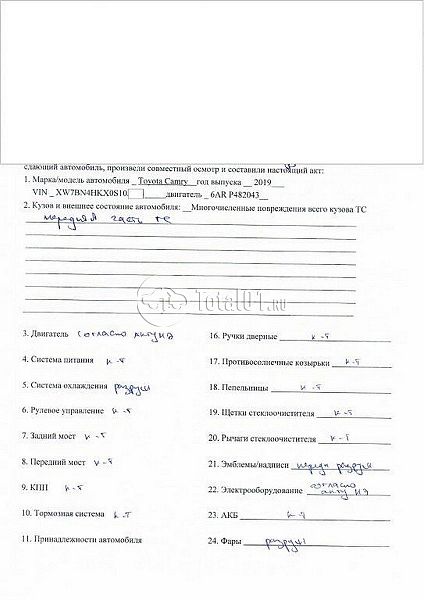 сдающий автомобиль, произвели совместный осмотр и составили настоящий акт:
1. Марка/модель автомобиля _ Toyota Camry__год выпуска __ 2019__
VIN _ XW7BN4HKX0S10 ____двигатель _ 6AR P482043__
2. Кузов и внешнее состояние автомобиля: __Многочисленные повреждения всего кузова ТС
передняя часть тс
Total01.ru
3. Двигатель согласно акту НЭ
4. Система питания к-т
5. Система охлаждения разруш
6. Рулевое управление к-т
7. Задний мост к-т
8. Передний мост к-т
9. КПП к-т
10. Тормозная система к-т
11. Принадлежности автомобиля
16. Ручки дверные к-т
17. Противосолнечные козырьки к-т
18. Пепельницы к-т
19. Щетки стеклоочистителя к-т
20. Рычаги стеклоочистителя к-т
21. Эмблемы/надписи передн разруш
22. Электрооборудование согласно
акту НЭ
23. АКБ к-т
24. Фары разруш